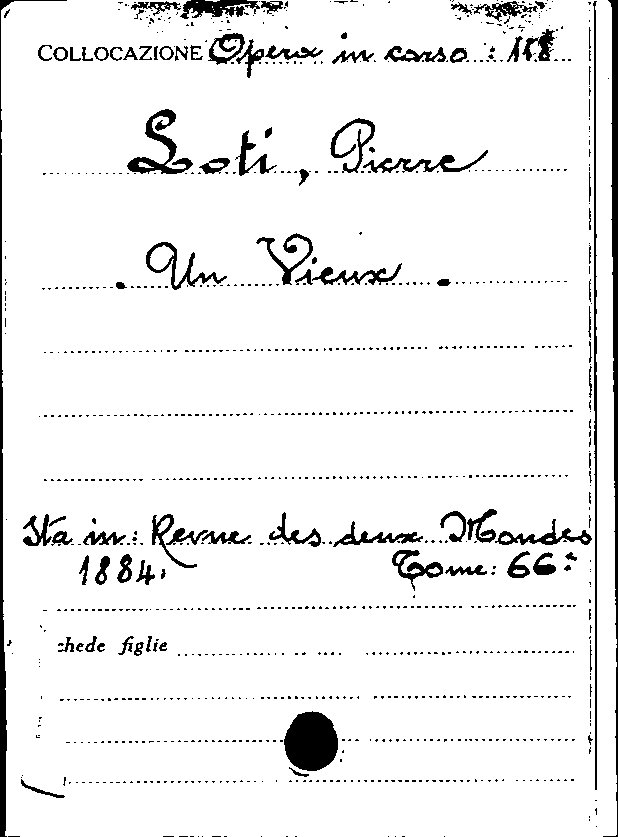 COLLOCAZIONE Opera in corso : 118
Loti, Pierre
. Un Vieux .
Sta in: Revue des deux Mondes
1884. Tome: 66º
chede figlie